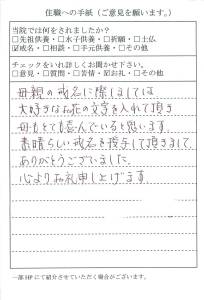 住職への手紙（ご意見を願います。）
当院では何をされましたか？
□先祖供養・□水子供養・□祈願・□土仏
☑戒名・□相談・□手元供養・□その他
チェックをいれ詳しくお聞かせ下さい。
□意見・□質問・□苦情・☑お礼・□その他
母親の戒名に際しましては、
大好きなお花の文字を入れて頂き
母もとても喜んでいると思います。
素晴らしい戒名を授与して頂きまして、
ありがとうございました。
心よりお礼申し上げます
一部HPにて紹介させていただく場合がございます。